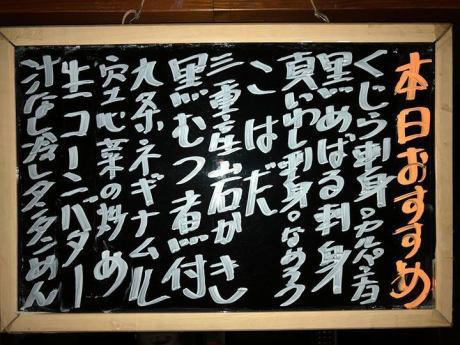 本日おすすめ
くじら刺身。カルパッチョ
黒めばる刺身
真いわし刺身。なめろう
こはだ
三重産岩がき
黒むつ煮付
九条ネギナムル
空心菜の炒め
生コーンバター
汁なしタンタンめん